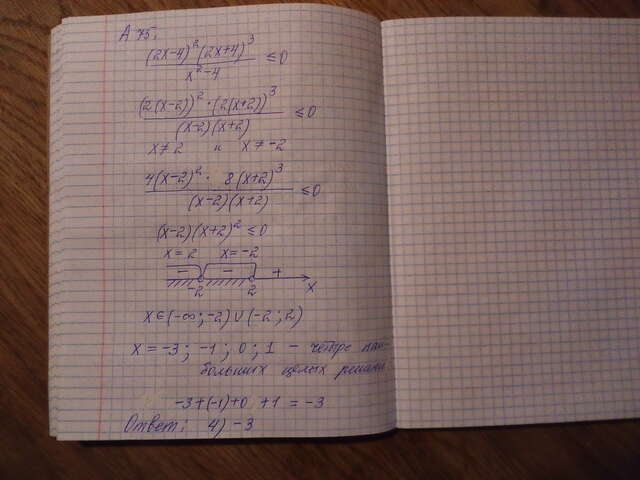 А 75.
(2x-4)²(2x+4)³ / x²-4 ≤0
(2(x-2))²·(2(x+2))³ / (x-2)(x+2) ≤0
x≠2 и x≠-2
4(x-2)²· 8(x+2)³ / (x-2)(x+2) ≤0
(x-2)(x+2)² ≤0
x=2 x=-2
- - +
-2 2 x
x∈(-∞;-2)∪(-2;2)
x=-3; -1; 0; 1 - четыре наи-
больших целых решени
-3+(-1)+0 +1 = -3
Ответ: 4) -3